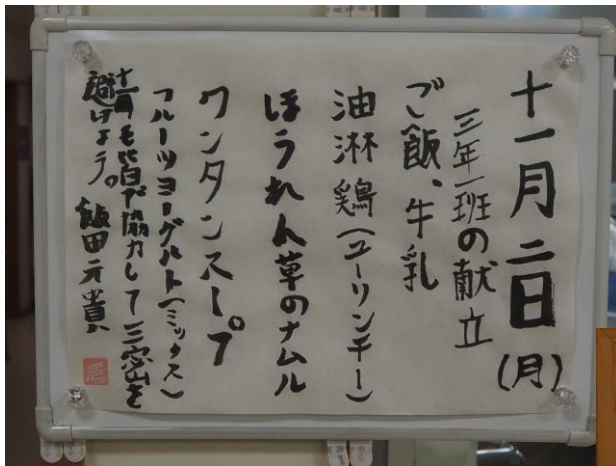 十一月二日(月)
三年一班の献立
ご飯、牛乳
油淋鶏(ユーリンチー)
ほうれん草のナムル
ワンタンスープ
フルーツヨーグルト(ミックス)
十一月も皆で協力して三密を
避けよう。 飯田元貴